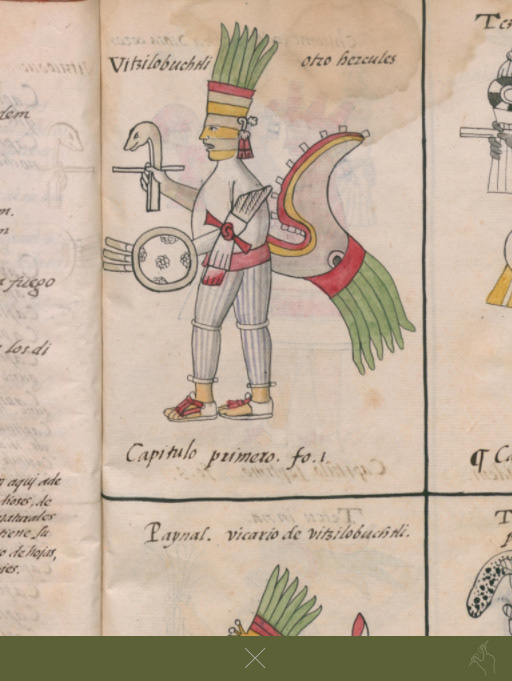 dem
m.
m
fuego
los di
aqui ade
dioses, de
naturales
tiene su
o de hojas,
Vitzilobuchtli otro hercules
Capitulo primero. fo. 1.
Paynal. vicario de vitzilobuchtli.
¶ Ca